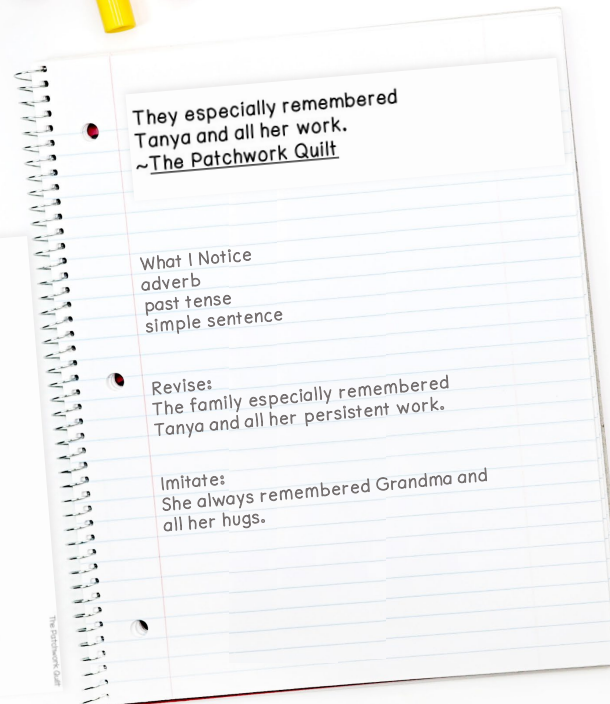 They especially remembered
Tanya and all her work.
~The Patchwork Quilt
What I Notice
adverb
past tense
simple sentence
Revise:
The family especially remembered
Tanya and all her persistent work.
Imitate:
She always remembered Grandma and
all her hugs.
The Patchwork Quilt